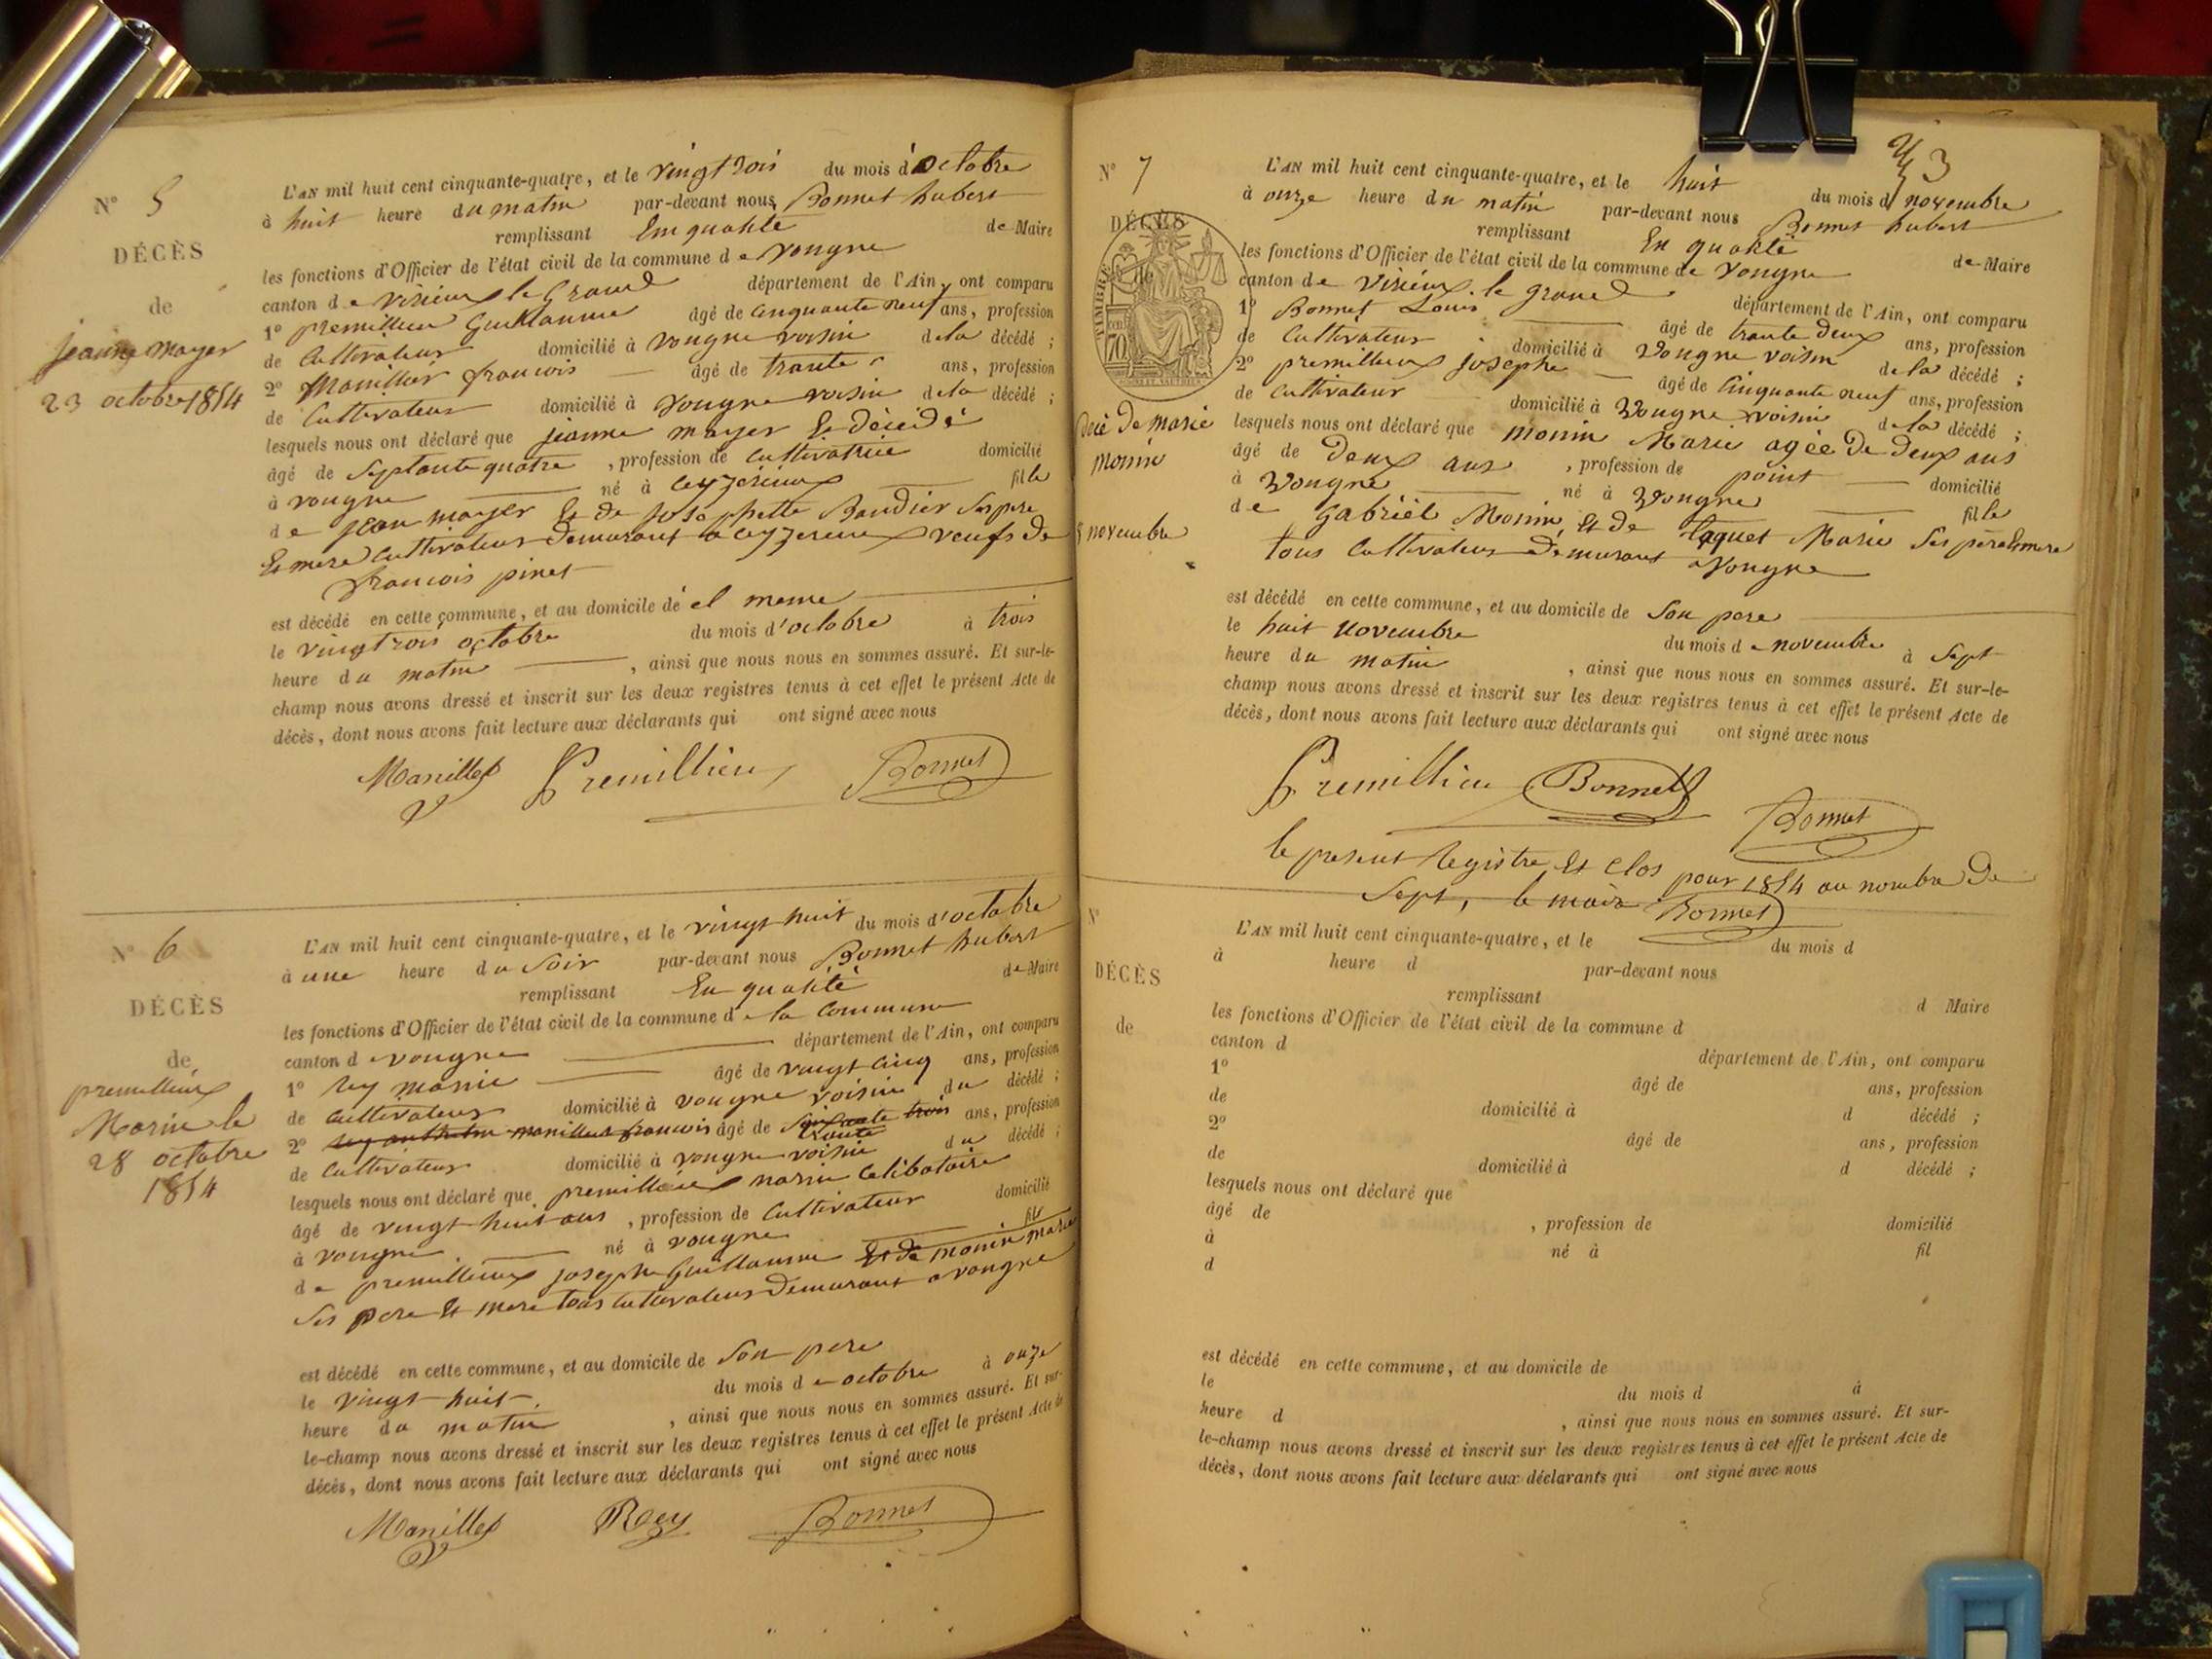 N° 5
DÉCÈS
de
jeanne mayer
23 octobre 1854
L'AN mil huit cent cinquante-quatre, et le vingtrois du mois d'octobre
à huit heure du matin par-devant nous Bonnet hubert
remplissant En qualité de Maire
les fonctions d'Officier de l'état civil de la commune de vongne
canton de virieux le Grand département de l'Ain, ont comparu
1° premillieu Guillaume âgé de cinquante neuf ans, profession
de Cultivateur domicilié à vongne voisin de la décédé ;
2° Manillier francois âgé de trante ans, profession
de Cultivateur domicilié à vongne voisin de la décédé ;
lesquels nous ont déclaré que jeanne mayer Et décédé
âgé de Septante quatre , profession de Cultivatrice domicilié
à vongne né à ceyzérieux fille
de jean mayer Et de josephette Baudier Ses pere
Et mere Cultivateur demurant a ceyzerieux veufs de
francois pinet
est décédé en cette commune, et au domicile de el meme
le vingtrois octobre du mois d'octobre à trois
heure du matin , ainsi que nous nous en sommes assuré. Et sur-le-
champ nous avons dressé et inscrit sur les deux registres tenus à cet effet le présent Acte de
décès, dont nous avons fait lecture aux déclarants qui ont signé avec nous
Manillet Premillieu Bonnet
N° 6
DÉCÈS
de
premillieux
Marin le
28 octobre
1854
L'AN mil huit cent cinquante-quatre, et le vingt huit du mois d'octobre
à une heure du Soir par-devant nous Bonnet hubert
remplissant En qualité de Maire
les fonctions d'Officier de l'état civil de la commune de la Commune
canton de vongne département de l'Ain, ont comparu
1° Rey marin âgé de vingt cinq ans, profession
de Cultivateur domicilié à vongne voisin du décédé ;
2° manillet francois âgé de trante ans, profession
de Cultivateur domicilié à vongne voisin du décédé ;
lesquels nous ont déclaré que premillieux marin Celibataire
âgé de vingt huit ans , profession de Cultivateur domicilié
à vongne né à vongne fils
de premillieux joseph Guillaume Et de monin marie
Ses pere Et mere tous Cultivateur Demurant a vongne
est décédé en cette commune, et au domicile de Son pere
le vingt huit du mois de octobre à onze
heure du matin , ainsi que nous nous en sommes assuré. Et sur-
le-champ nous avons dressé et inscrit sur les deux registres tenus à cet effet le présent Acte de
décès, dont nous avons fait lecture aux déclarants qui ont signé avec nous
Manillet Rey Bonnet
3
N° 7
DÉCÈS
de
TIMBRE
70
Décé De marie
Monin
8 novembre
L'AN mil huit cent cinquante-quatre, et le huit du mois de novembre
à onze heure du matin par-devant nous Bonnet hubert
remplissant En qualité de Maire
les fonctions d'Officier de l'état civil de la commune de Vongne
canton de virieux le grand département de l'Ain, ont comparu
1° Bonnet Louis âgé de trante deux ans, profession
de Cultivateur domicilié à Vongne voisin de la décédé ;
2° premillieux josephe âgé de Cinquante neuf ans, profession
de Cultivateur domicilié à Vongne voisin de la décédé ;
lesquels nous ont déclaré que Monin Marie agée De Deux ans
âgé de Deux ans , profession de point domicilié
à Vongne né à Vongne fille
de Gabriel Monin Et de Marie Ses pere Et mere
tous Cultivateur Demurant a Vongne
est décédé en cette commune, et au domicile de Son pere
le huit novembre du mois de novembre à Sept
heure du matin , ainsi que nous nous en sommes assuré. Et sur-le-
champ nous avons dressé et inscrit sur les deux registres tenus à cet effet le présent Acte de
décès, dont nous avons fait lecture aux déclarants qui ont signé avec nous
Premillieu Bonnet
Bonnet
le present Registre Et Clos pour 1854 au nombre De
Sept, le maire Bonnet
N°
DÉCÈS
de
L'AN mil huit cent cinquante-quatre, et le du mois d
à heure d par-devant nous
remplissant d Maire
les fonctions d'Officier de l'état civil de la commune d
canton d département de l'Ain, ont comparu
1° âgé de ans, profession
de domicilié à d décédé ;
2° âgé de ans, profession
de domicilié à d décédé ;
lesquels nous ont déclaré que
âgé de , profession de domicilié
à né à fil
d
est décédé en cette commune, et au domicile de
le du mois d à
heure d , ainsi que nous nous en sommes assuré. Et sur-
le-champ nous avons dressé et inscrit sur les deux registres tenus à cet effet le présent Acte de
décès, dont nous avons fait lecture aux déclarants qui ont signé avec nous